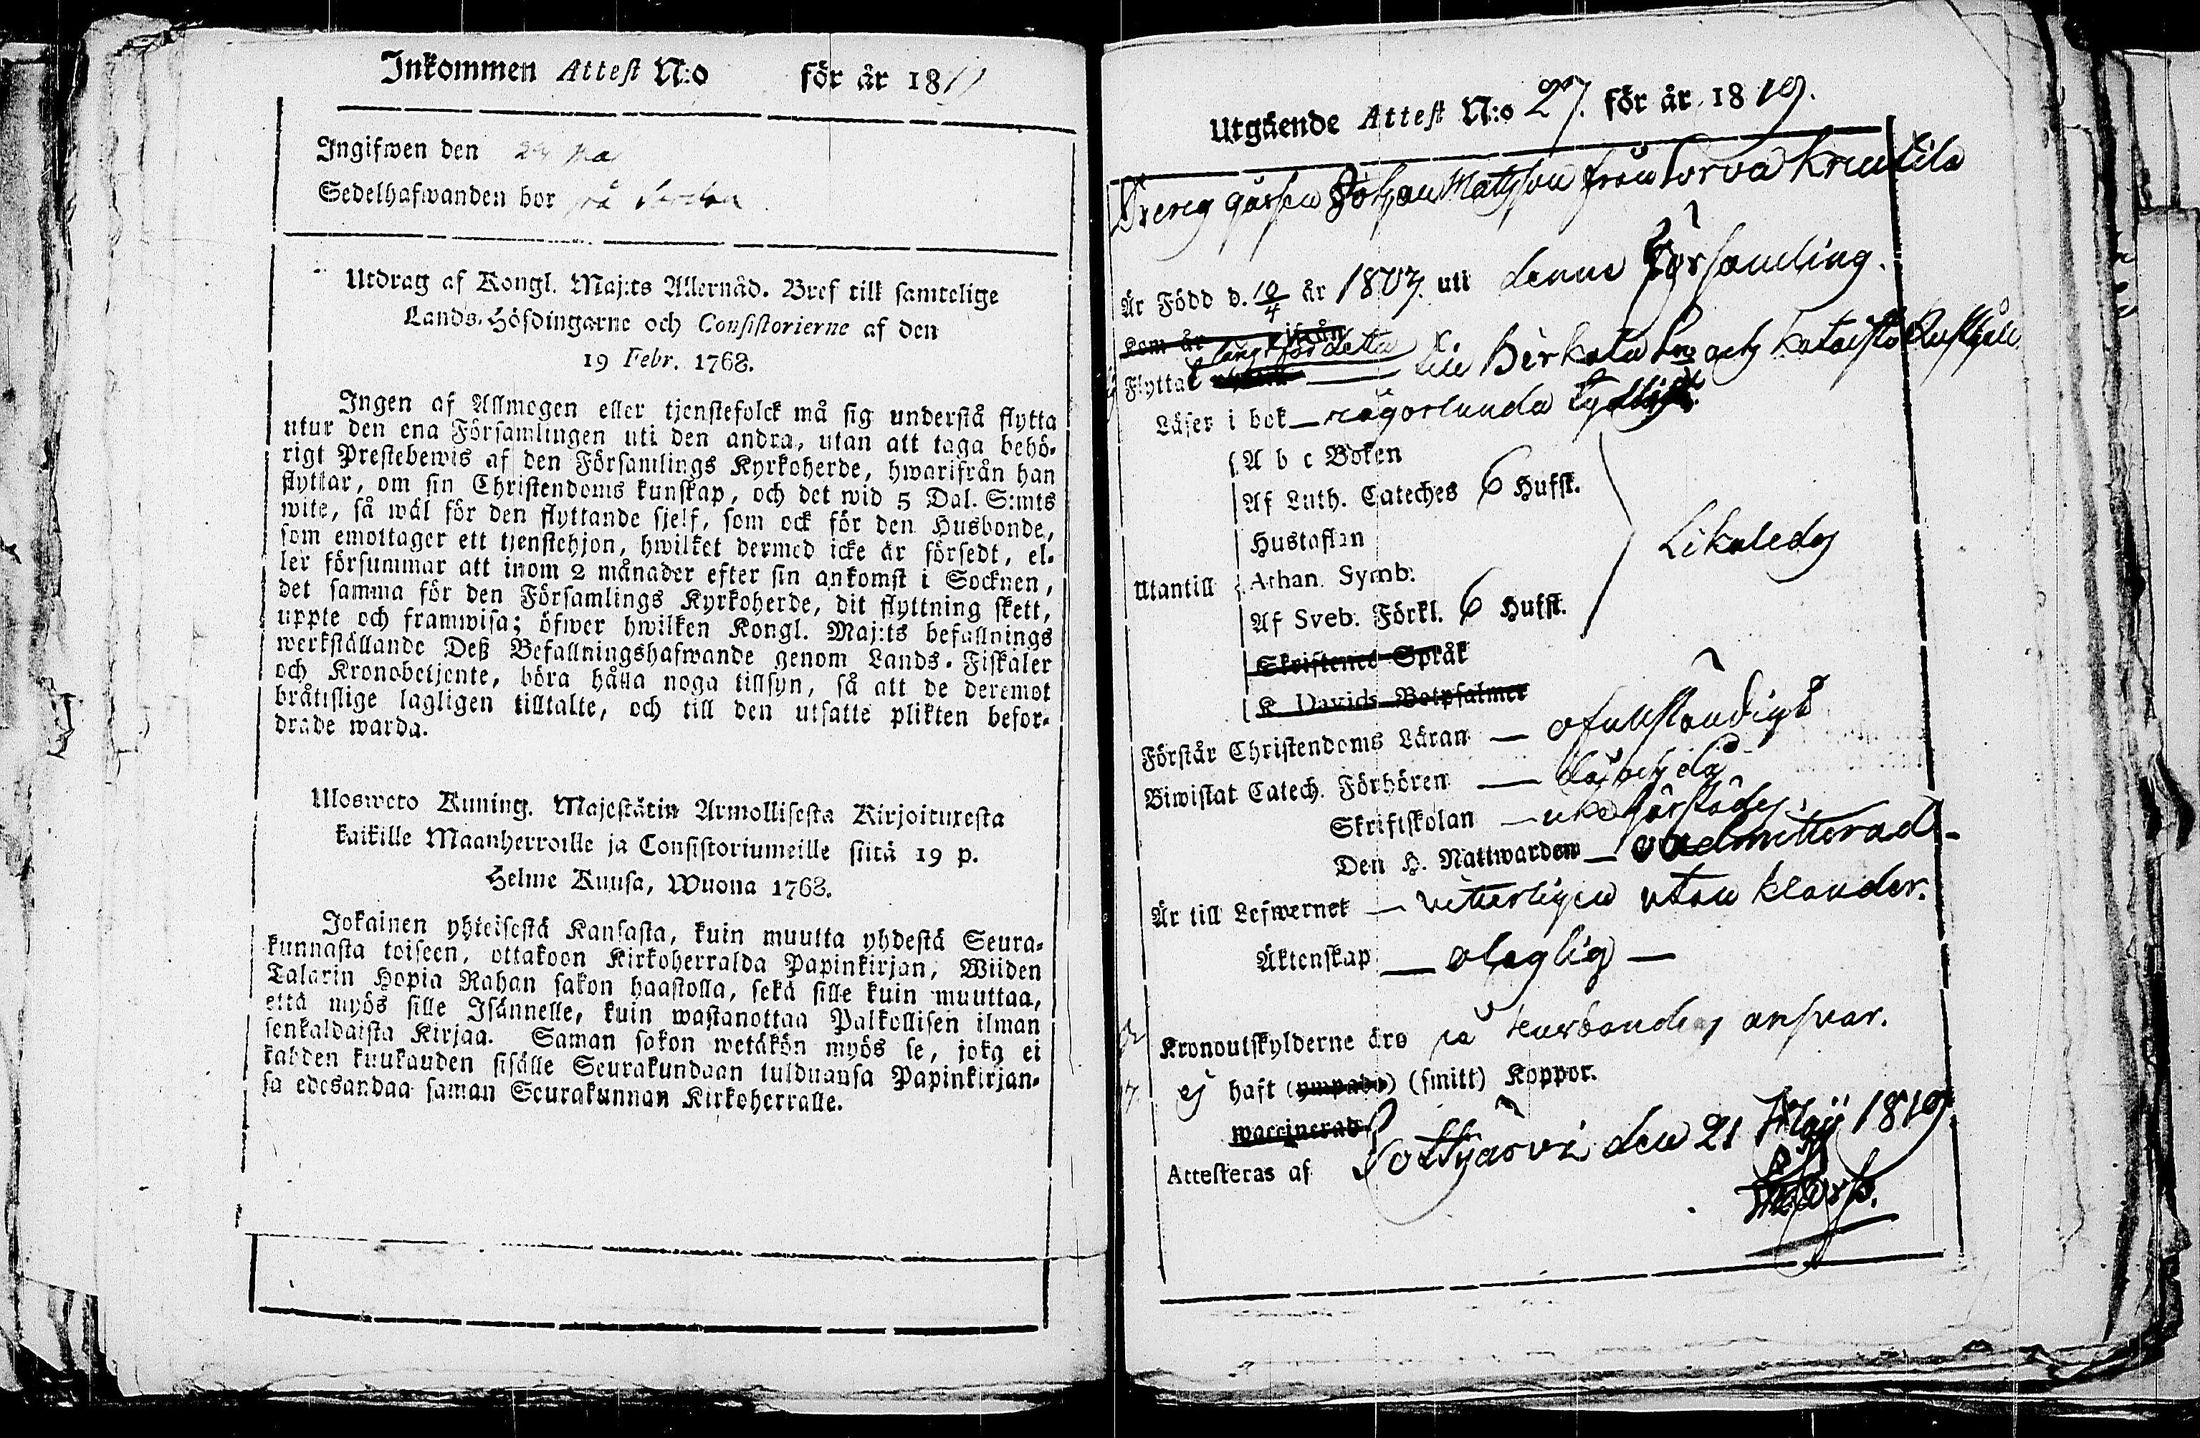 Inkommen Attest N:o för år 18
Ingifwen den 24
Sedelhafwanden bor på
Utdrag af Kongl. Maj:ts Allernåd. Bref till samtelige
Lands-Höfdingarne och Consistorierne af den
19 Febr. 1768.
Ingen af Allmogen eller tjenstefolck må sig understå flytta
utur den ena Församlingen uti den andra, utan att taga behö-
rigt Prestebewis af den Församlings Kyrkoherde, hwarifrån han
flyttar, om sin Christendoms kunskap, och det wid 5 Dal. S:mts
wite, så wäl för den flyttande sjelf, som ock för den Husbonde,
som emottager ett tjenstehjon, hwilket dermed icke är försedt, el-
ler försummar att inom 2 månader efter sin ankomst i Socknen,
det samma för den Församlings Kyrkoherde, dit flyttning skett,
uppte och framwisa; öfwer hwilken Kongl. Maj:ts befallnings
werkställande Deß Befallningshafwande genom Lands-Fiskaler
och Kronobetjente, böra hålla noga tillsyn, så att de deremot
bråtislige lagligen tilltalte, och till den utsatte plikten befor-
drade warda.
Ulosweto Kuning. Majestätin Armollisesta Kirjoituxesta
kaikille Maanherroille ja Consistoriumeille siitä 19 p.
Helme Kuusa, Wuona 1768.
Jokainen yhteisestä Kansasta, kuin muutta yhdestä Seura-
kunnasta toiseen, ottakoon Kirkoherralda Papinkirjan, Wiiden
Talarin Hopia Rahan sakon haastolla, sekä sille kuin muuttaa,
että myös sille Isännelle, kuin wastanottaa Palkollisen ilman
senkaldaista Kirjaa. Saman sakon wetäkön myös se, joka ei
kahden kuukauden sisälle Seurakundaan tulduansa Papinkirjan-
sa edesandaa saman Seurakunnan Kirkoherralle.
Utgående Attest N:o 27. för år 1819.
Dreng gåssen Johan Matsson från Torva Krusila
Är Född d. 10/4 år 1807. uti denna Församling.
Kom år ifrån
Flyttat långt för detta till Birkala Sn och
Läser i bok — någorlunda
A b c Boken
Af Luth. Cateches 6 Hufst.
Hustaflan
Likaledes
Utantill Athan. Symb.
Af Sveb. Förkl. 6 Hufst.
Skriftenes Språk
K. Davids Botpsalmer
Förstår Christendoms Läran — ofullständigt
Biwistat Catech. Förhören — då och då
Skriftskolan —
Den H. Nattwarden — oadmitterad —
Är till Lefwernet — vitterligen utan klander.
Äktenskap — olaglig —
Kronoutskylderne äro på husbondes ansvar.
ej haft (ympade) (smitt) Koppor.
waccinerad
Attesteras af Pöttyärvi den 21 Maji 1819.